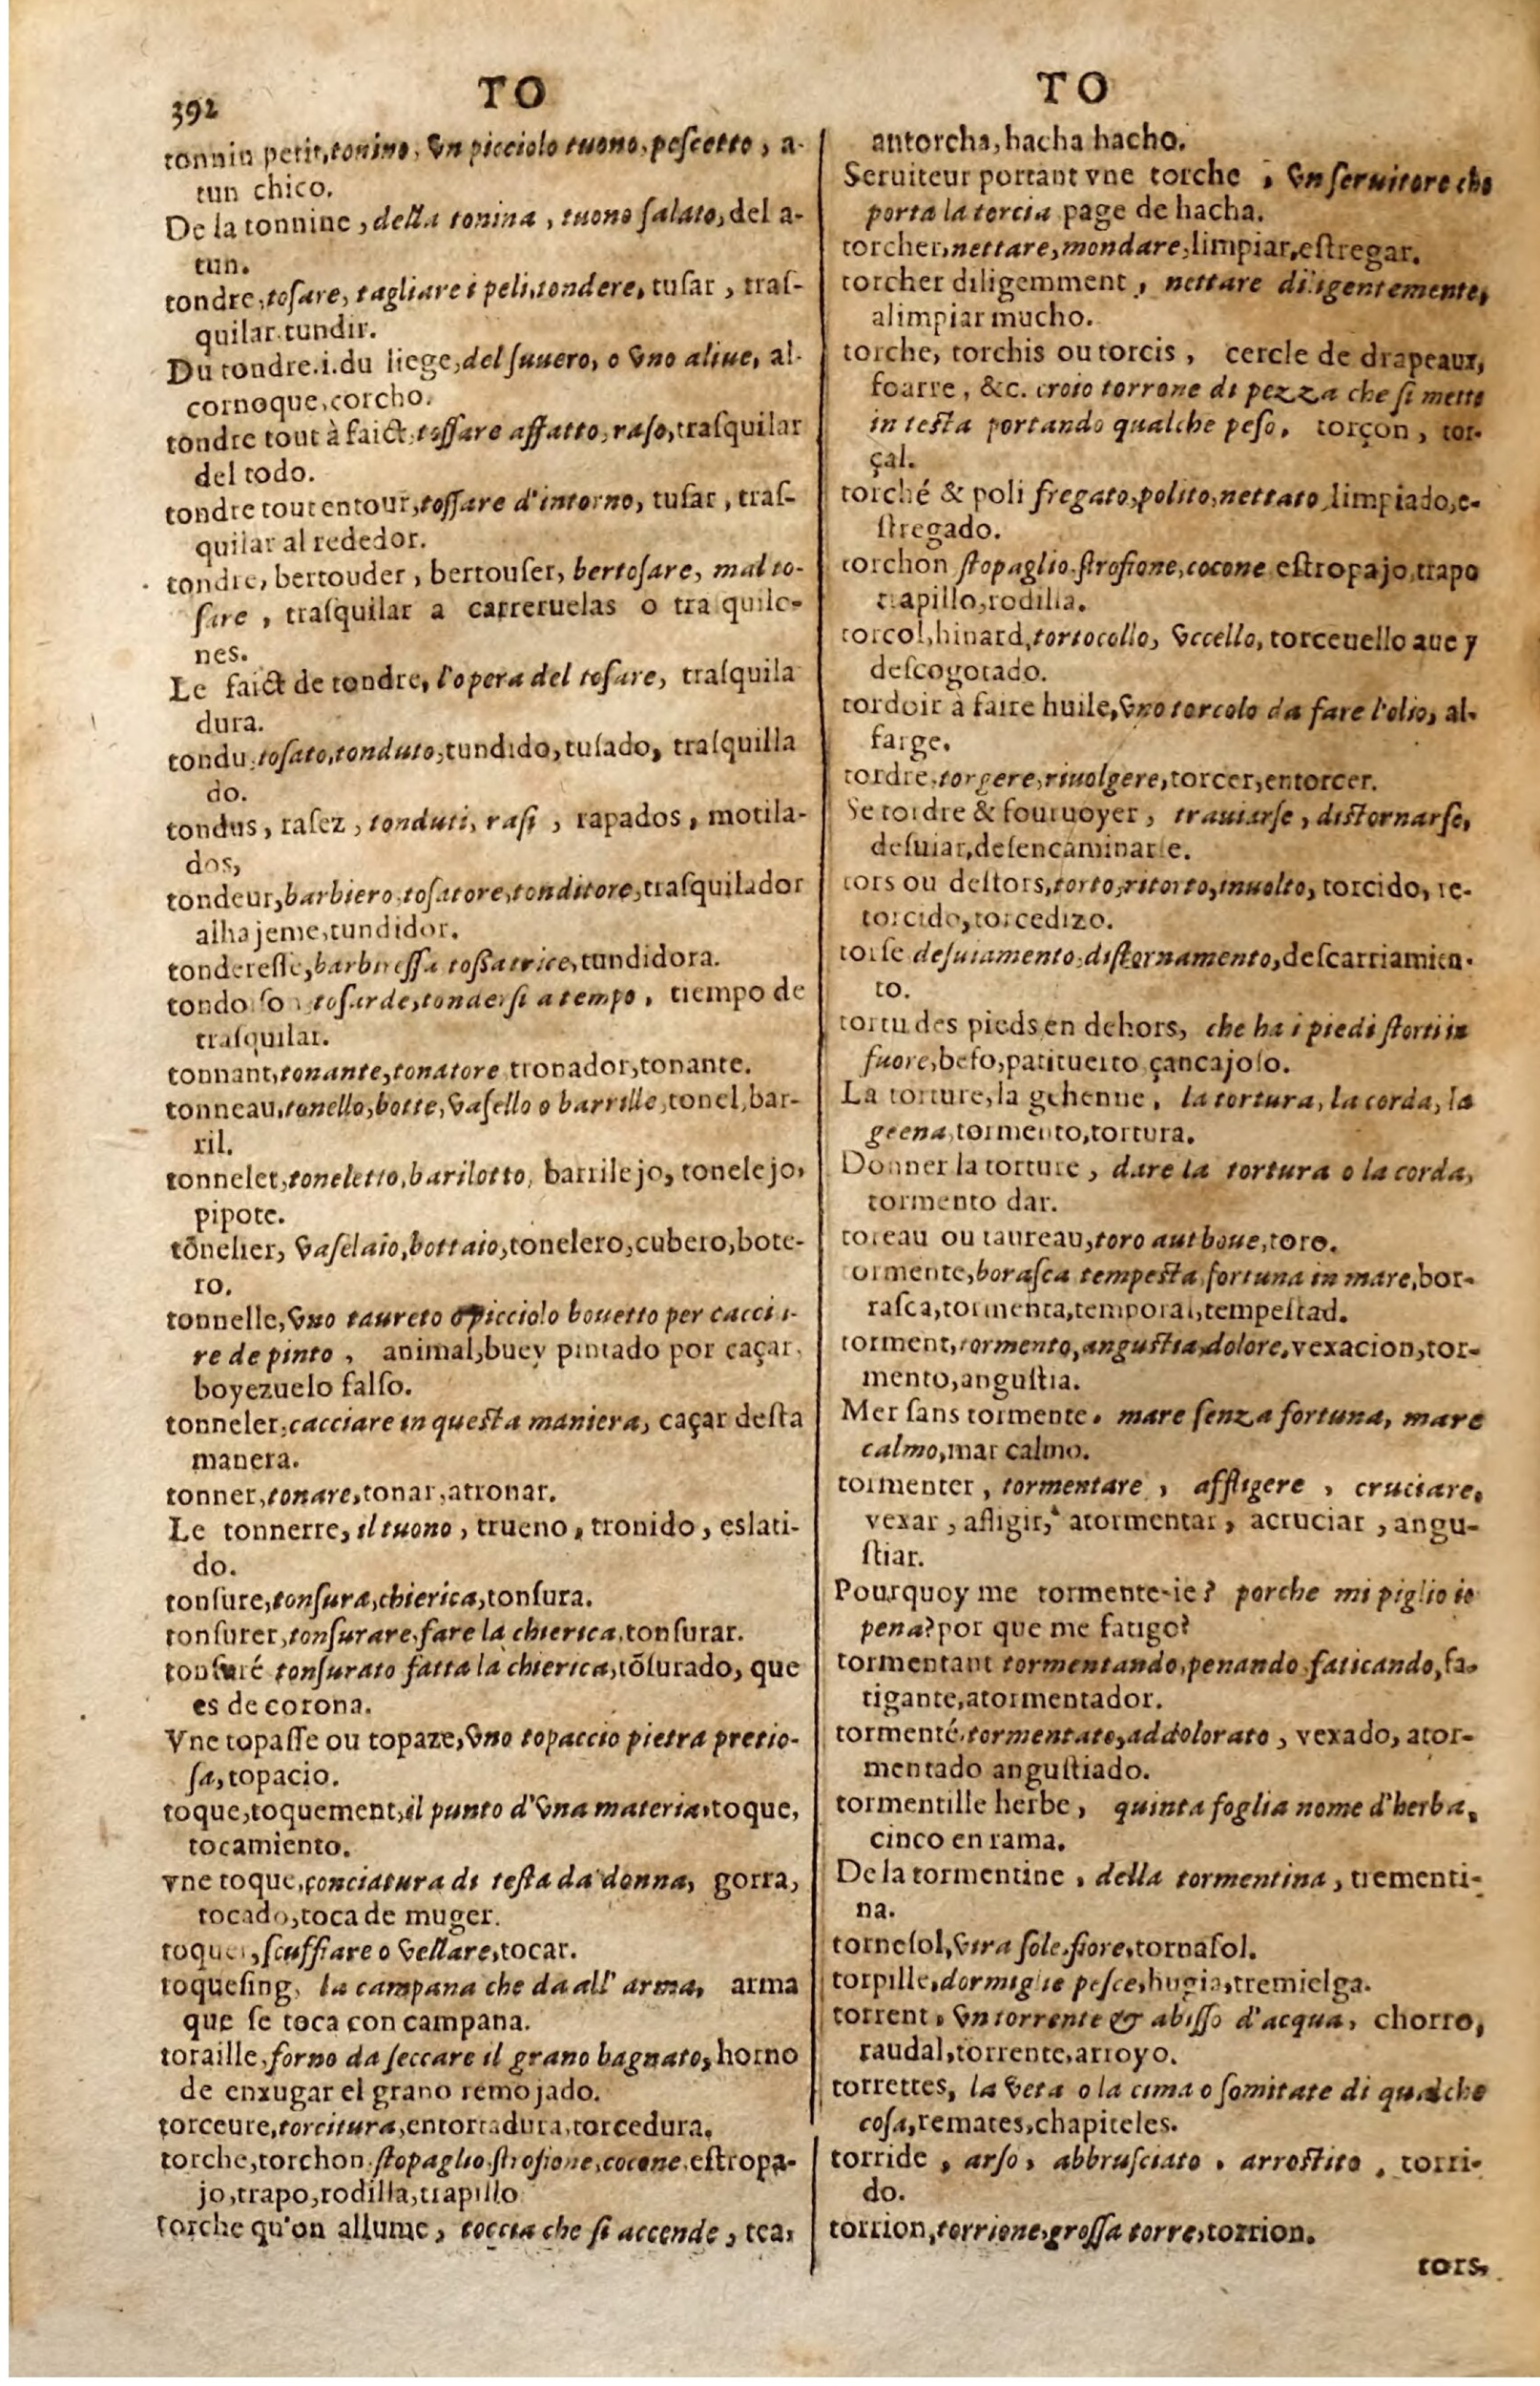 392
TO
TO
tonnin petit, tonino, vn picciolo tuono, pescetto, a-
tun chico.
De la tonnine, della tonina, tuono salato, del a-
tun.
tondre, tosare, tagliare i peli, tondere, tusar, tras-
quilar tundir.
Du tondre .i. du liege, del suuero, o vno aliue, al-
cornoque, corcho.
tondre tout à faict, tossare affatto, raso, trasquilar
del todo.
tondre tout entour, tossare d'intorno, tusar, tras-
quilar al rededor.
tondre, bertouder, bertouser, bertosare, mal to-
sare, trasquilar a carreruelas o tra quilo-
nes.
Le faict de tondre, l'opera del tosare, trasquila
dura.
tondu, tosato, tonduto, tundido, tusado, trasquilla
do.
tondus, rasez, tonduti, rasi, rapados, motila-
dos,
tondeur, barbiero, tosatore, tonditore, trasquilador
alhajeme, tundidor.
tonderesse, barbiressa tossatrice, tundidora.
tondoison tosarde, tondersi a tempo, tiempo de
trasquilar.
tonnant, tonante, tonatore tronador, tonante.
tonneau, tonello, botte, vasello o barrille, tonel, bar-
ril.
tonnelet, toneletto, barilotto, barrilejo, tonelejo,
pipote.
tõnelier, vaselaio, bottaio, tonelero, cubero, bote-
ro.
tonnelle, vno taureto o picciolo bouetto per caccia-
re de pinto, animal, buey pintado por caçar,
boyezuelo falso.
tonneler, cacciare in questa maniera, caçar desta
manera.
tonner, tonare, tonar, atronar.
Le tonnerre, il tuono, trueno, tronido, eslati-
do.
tonsure, tonsura, chierica, tonsura.
tonsurer, tonsurare, fare la chierica, tonsurar.
tonsuré tonsurato fatta la chierica, tõsurado, que
es de corona.
Vne topasse ou topaze, vno topaccio pietra pretio-
sa, topacio.
toque, toquement, il punto d'vna materia, toque,
tocamiento.
vne toque, conciatura di testa da donna, gorra,
tocado, toca de muger.
toquer, scuffiare o vellare, tocar.
toquesing, la campana che da all' arma, arma
que se toca con campana.
toraille, forno da seccare il grano bagnato, horno
de enxugar el grano remojado.
torceure, torcitura, entortadura, torcedura.
torche, torchon, stopaglio, strofione, cocone, estropa-
jo, trapo, rodilla, trapillo
torche qu'on allume, torcia che si accende, tea,
antorcha, hacha hacho.
Seruiteur portant vne torche, vn seruitore che
porta la torcia page de hacha.
torcher, nettare, mondare, limpiar, estregar.
torcher diligemment, nettare diligentemente,
alimpiar mucho.
torche, torchis ou torcis, cercle de drapeaux,
foarre, &c. croio torrone di pezza che si mette
in testa portando qualche peso, torçon, tor-
çal.
torché & poli fregato, polito, nettato, limpiado, e-
stregado.
torchon stopaglio, strofione, cocone estropajo, trapo
trapillo, rodilla.
torcol, hinard, tortocollo, vccello, torceuello aue y
descogotado.
tordoir à faire huile, vno torcolo da fare l'olio, al-
farge.
tordre, torgere, riuolgere, torcer, entorcer.
Se tordre & fouruoyer, trauiarse, distornarse,
desuiar, desencaminarse.
tors ou destors, torto, ritorto, inuolto, torcido, re-
torcido, torcedizo.
torse desuiamento, distornamento, descarriamien-
to.
tortu des pieds en dehors, che ha i piedi storti in
fuore, befo, patituerto çancajoso.
La torture, la gehenne, la tortura, la corda, la
geena, tormento, tortura.
Donner la torture, dare la tortura o la corda,
tormento dar.
toreau ou taureau, toro aut boue, toro.
tormente, borasca tempesta, fortuna in mare, bor-
rasca, tormenta, temporal, tempestad.
torment, tormento, angustia, dolore, vexacion, tor-
mento, angustia.
Mer sans tormente. mare senza fortuna, mare
calmo, mar calmo.
tormenter, tormentare, affligere, cruciare,
vexar, afligir, atormentar, acruciar, angu-
stiar.
Pourquoy me tormente-ie? porche mi piglio io
pena? por que me fatigo?
tormentant tormentando, penando, faticando, fa-
tigante, atormentador.
tormenté, tormentato, addolorato, vexado, ator-
mentado angustiado.
tormentille herbe, quinta foglia nome d'herba,
cinco en rama.
De la tormentine, della tormentina, trementi-
na.
tornesol, vira sole, fiore, tornasol.
torpille, dormiglie pesce, hugia, tremielga.
torrent, vn torrente & abisso d'acqua, chorro,
raudal, torrente, arroyo.
torrettes, la veta o la cima o somitate di qualche
cosa, remates, chapiteles.
torride, arso, abbrusciato, arrostito, torri-
do.
torrion, torrione, grossa torre, torrion.
tors,